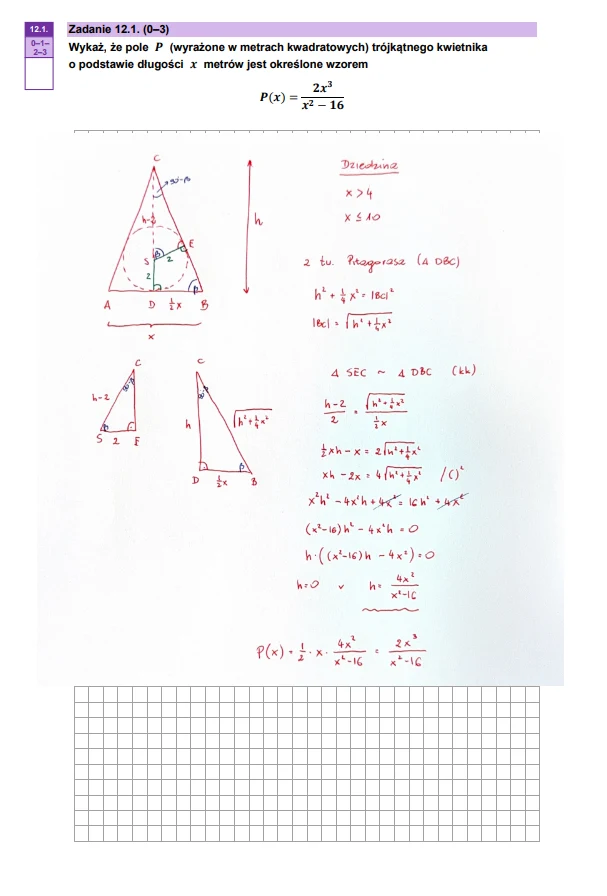 12.1.
0–1–
2–3
Zadanie 12.1. (0–3)
Wykaż, że pole P (wyrażone w metrach kwadratowych) trójkątnego kwietnika
o podstawie długości x metrów jest określone wzorem
P(x) = 2x³ / (x² − 16)
C
90°-β
h-2
h
S
β
2
E
2
β
A D ½x B
x
Dziedzina
x > 4
x ≤ 10
z tw. Pitagorasa (Δ DBC)
h² + ¼x² = |BC|²
|BC| = √(h² + ¼x²)
C
90°-β
h-2
β
S 2 E
C
90°-β
h
√(h² + ¼x²)
β
D ½x B
Δ SEC ~ Δ DBC (kk)
(h-2)/2 = √(h² + ¼x²) / (½x)
½xh - x = 2√(h² + ¼x²)
xh - 2x = 4√(h² + ¼x²) /()²
x²h² - 4x²h + 4x² = 16h² + 4x²
(x²-16)h² - 4x²h = 0
h·((x²-16)h - 4x²) = 0
h=0 v h = 4x² / (x²-16)
P(x) = ½ · x · 4x² / (x²-16) = 2x³ / (x²-16)